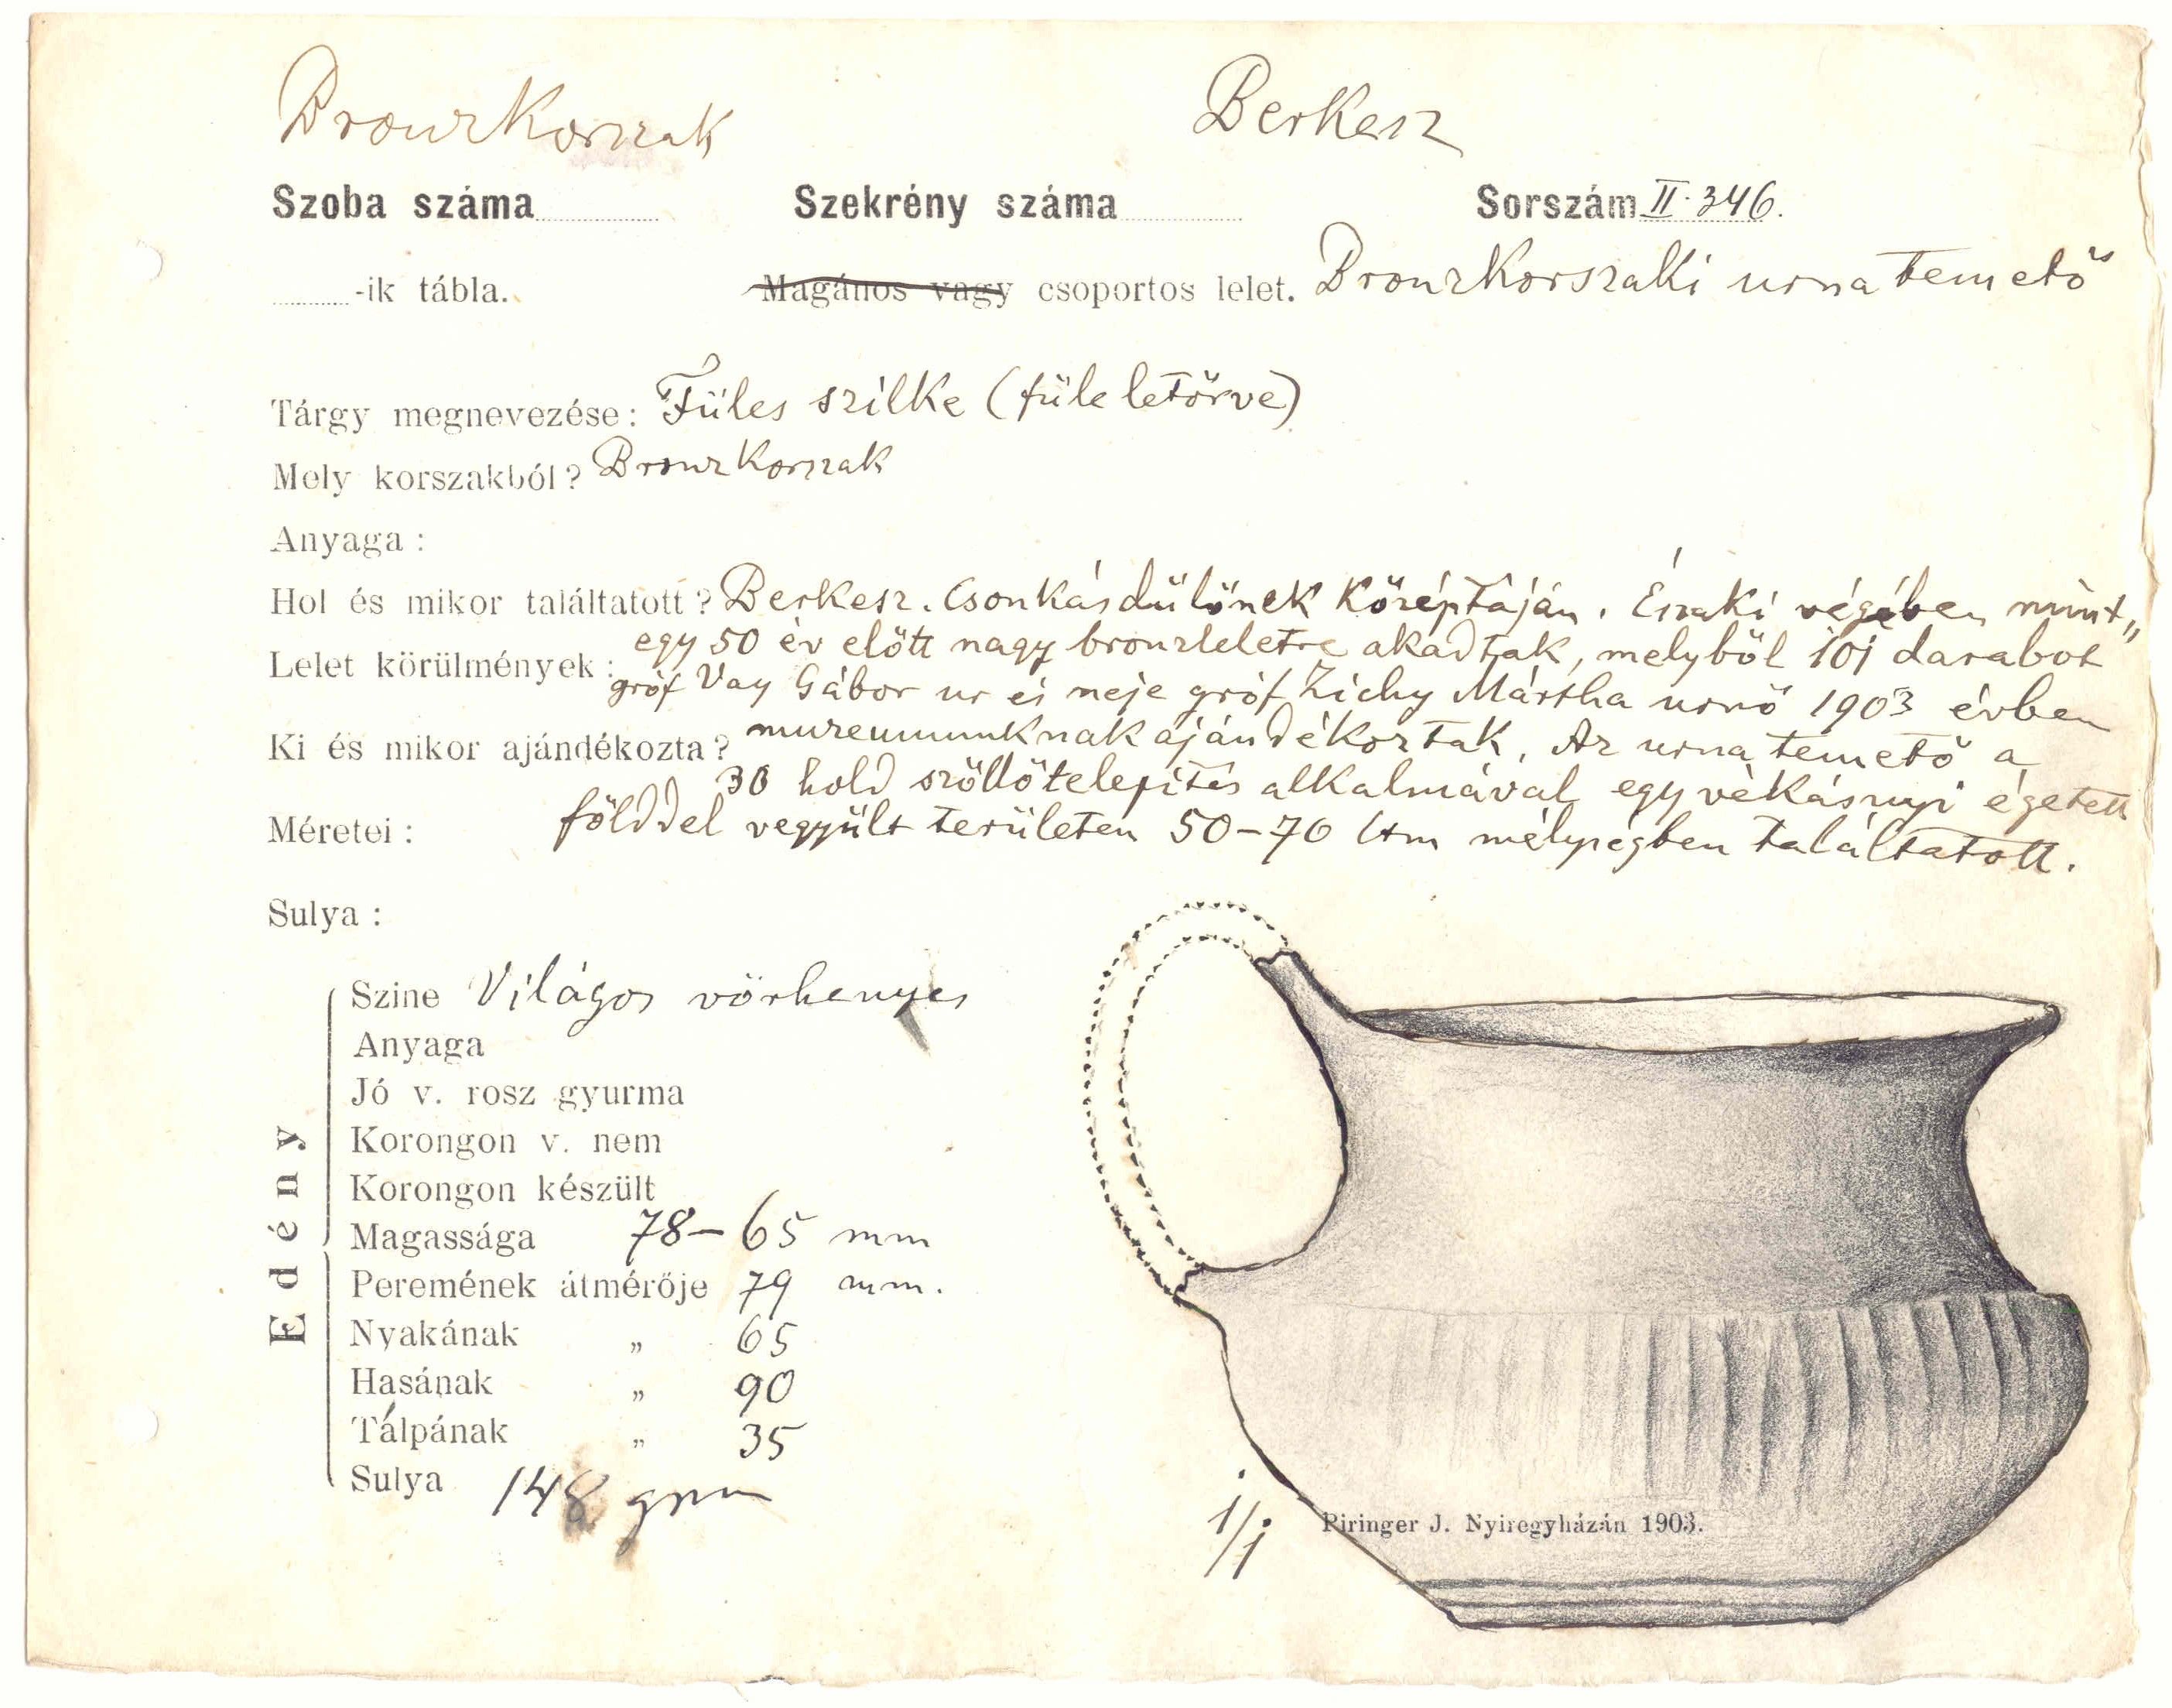 Bronzkorszak Berkesz
Szoba száma Szekrény száma Sorszám II. 346.
-ik tábla. Magános vagy csoportos lelet. Bronzkorszaki urnatemető
Tárgy megnevezése: Füles szilke (füle letörve)
Mely korszakból? Bronzkorszak
Anyaga:
Hol és mikor találtatott? Berkesz. Csonkásdűlőnek középtáján. Északi végében mint„
egy 50 év előtt nagy bronzleletre akadtak, melyből 101 darabot
Lelet körülmények:
gróf Vay Gábor ur és neje gróf Zichy Mártha urnő 1903 évben
Ki és mikor ajándékozta? muzeumunknak ajándékoztak. Az urnatemető a
30 hold szőllőtelepítés alkalmával egy vékásnyi égetett
Méretei: földdel vegyült területen 50-70 ctm mélységben találtatott.
Sulya:
Edény
Szine Világos vörhenyes
Anyaga
Jó v. rosz gyurma
Korongon v. nem
Korongon készült
Magassága 78-65 mm
Peremének átmérője 79 mm.
Nyakának „ 65
Hasának „ 90
Tálpának „ 35
Sulya 148 grm
1/1
Piringer J. Nyiregyházán 1903.